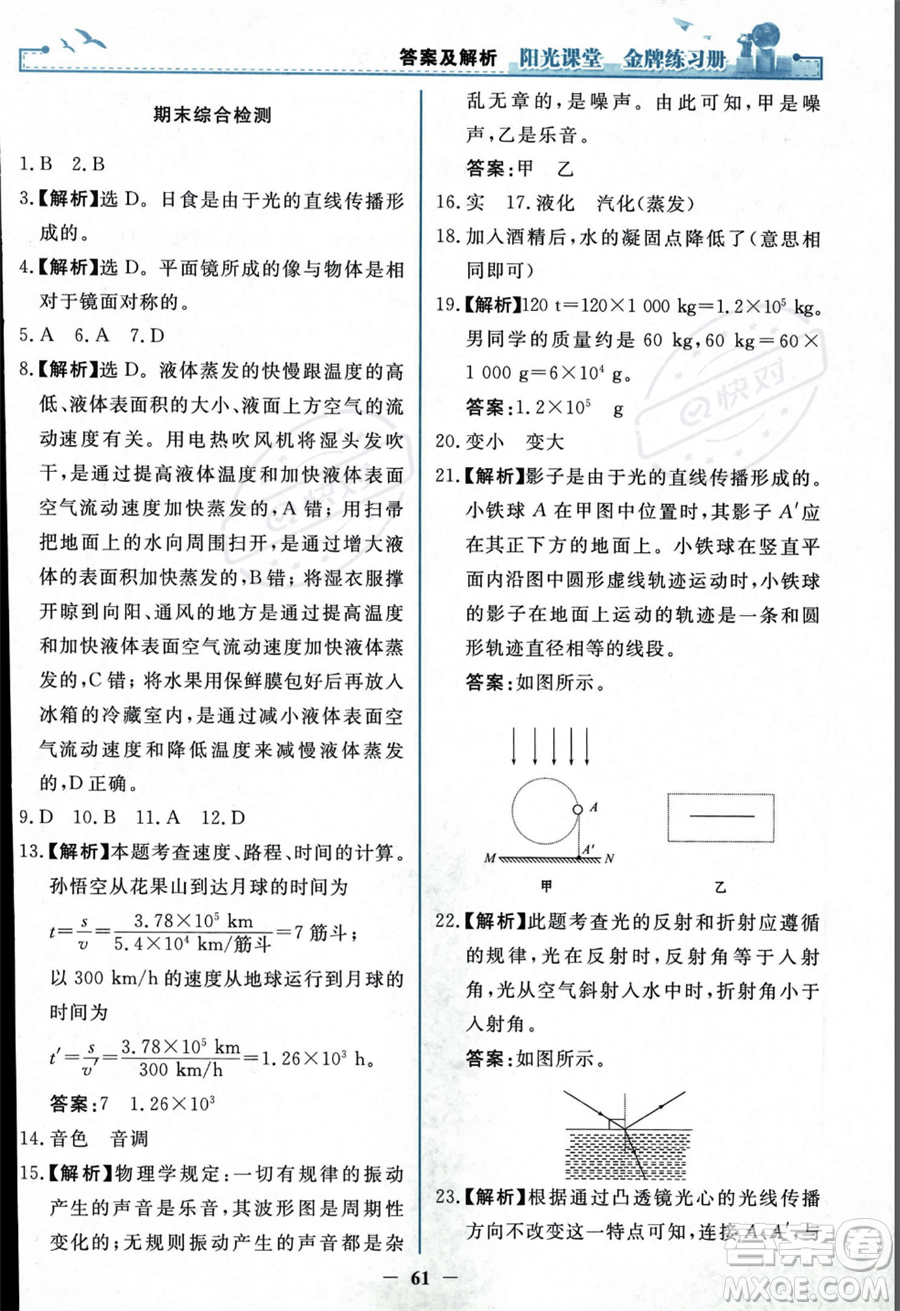 答案及解析 阳光课堂 金牌练习册
期末综合检测
1.B 2.B
3.【解析】选 D。日食是由于光的直线传播形
成的。
4.【解析】选 D。平面镜所成的像与物体是相
对于镜面对称的。
5.A 6.A 7.D
8.【解析】选 D。液体蒸发的快慢跟温度的高
低、液体表面积的大小、液面上方空气的流
动速度有关。用电热吹风机将湿头发吹
干,是通过提高液体温度和加快液体表面
空气流动速度加快蒸发的,A错;用扫帚
把地面上的水向周围扫开,是通过增大液
体表面积加快蒸发的,B错;将湿衣服撑
开晾到向阳、通风的地方是通过提高温度
和加快液体表面空气流动速度加快液体蒸
发的,C错;将水果用保鲜膜包好后再放入
冰箱的冷藏室内,是通过减小液体表面空
气流动速度和降低温度来减慢液体蒸发
的,D正确。
9.D 10.B 11.A 12.D
13.【解析】本题考查速度、路程、时间的计算。
孙悟空从花果山到达月球的时间为
t=s/v=3.78×10⁵ km/5.4×10⁴ km/筋斗=7 筋斗;
以 300 km/h 的速度从地球运行到月球的
时间为
t′=s/v′=3.78×10⁵ km/300 km/h=1.26×10³ h。
答案:7 1.26×10³
14.音色 音调
15.【解析】物理学规定:一切有规律的振动
产生的声音是乐音,其波形图是周期性
变化的;无规则振动产生的声音都是杂
乱无章的,是噪声。由此可知,甲是噪
声,乙是乐音。
答案:甲 乙
16.实 17.液化 汽化(蒸发)
18.加入酒精后,水的凝固点降低了(意思相
同即可)
19.【解析】120 t=120×1 000 kg=1.2×10⁵ kg。
男同学的质量约是 60 kg,60 kg=60×
1 000 g=6×10⁴ g。
答案:1.2×10⁵ g
20.变小 变大
21.【解析】影子是由于光的直线传播形成的。
小铁球 A 在甲图中位置时,其影子 A′应
在其正下方的地面上。小铁球在竖直平
面内沿图中圆形虚线轨迹运动时,小铁球
的影子在地面上运动的轨迹是一条和圆
形轨迹直径相等的线段。
答案:如图所示。
A
M A′ N
甲 乙
22.【解析】此题考查光的反射和折射应遵循
的规律,光在反射时,反射角等于入射
角,光从空气斜射入水中时,折射角小于
入射角。
答案:如图所示。
23.【解析】根据通过凸透镜光心的光线传播
方向不改变这一特点可知,连接 A、A′,与
61
快对
快对
答案圈
MXQE.COM